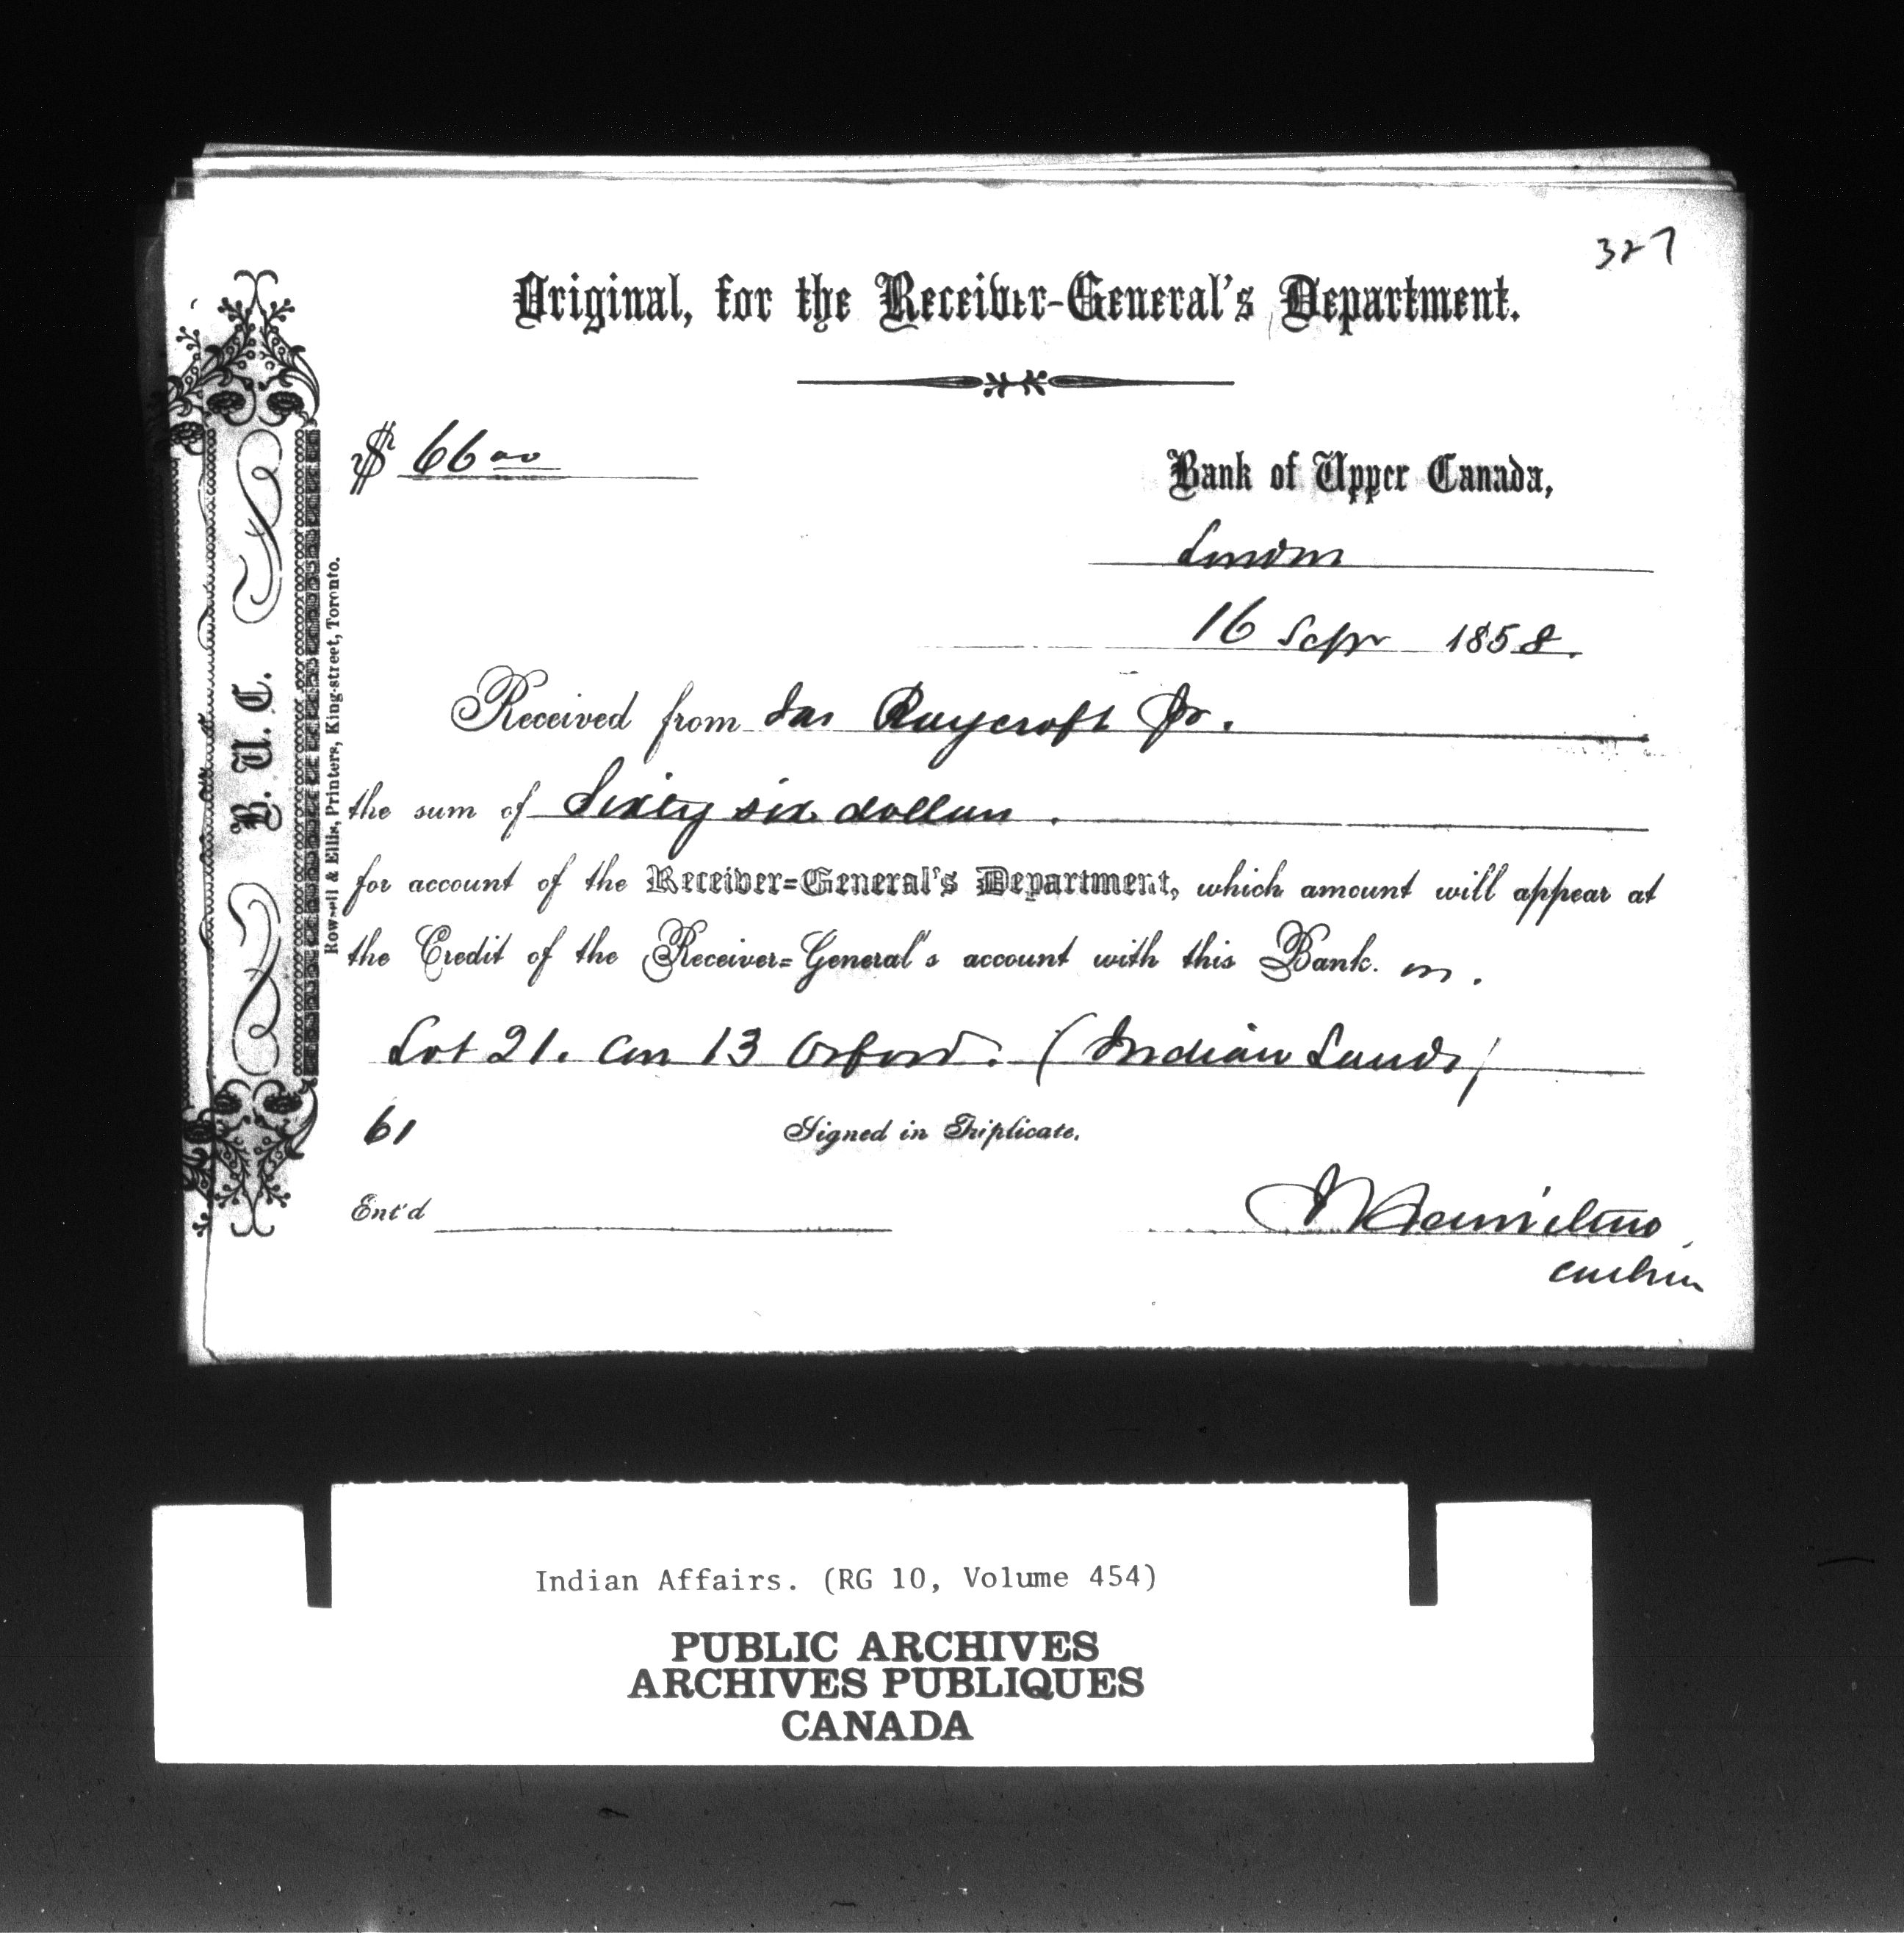 327
Original, for the Receiver-General's Department.
$ 66 00
Bank of Upper Canada,
London
16 Sepr 1858.
Received from Jas Raycroft Jr.
the sum of Sixty six dollars.
for account of the Receiver=General's Department, which amount will appear at
the Credit of the Receiver=General's account with this Bank. on.
Lot 21. Con 13 Orford. (Indian Lands)
61
Signed in Triplicate.
Ent'd
Hamilton
cashier
B. U. C.
Rowsell & Ellis, Printers, King-street, Toronto.
Indian Affairs. (RG 10, Volume 454)
PUBLIC ARCHIVES
ARCHIVES PUBLIQUES
CANADA